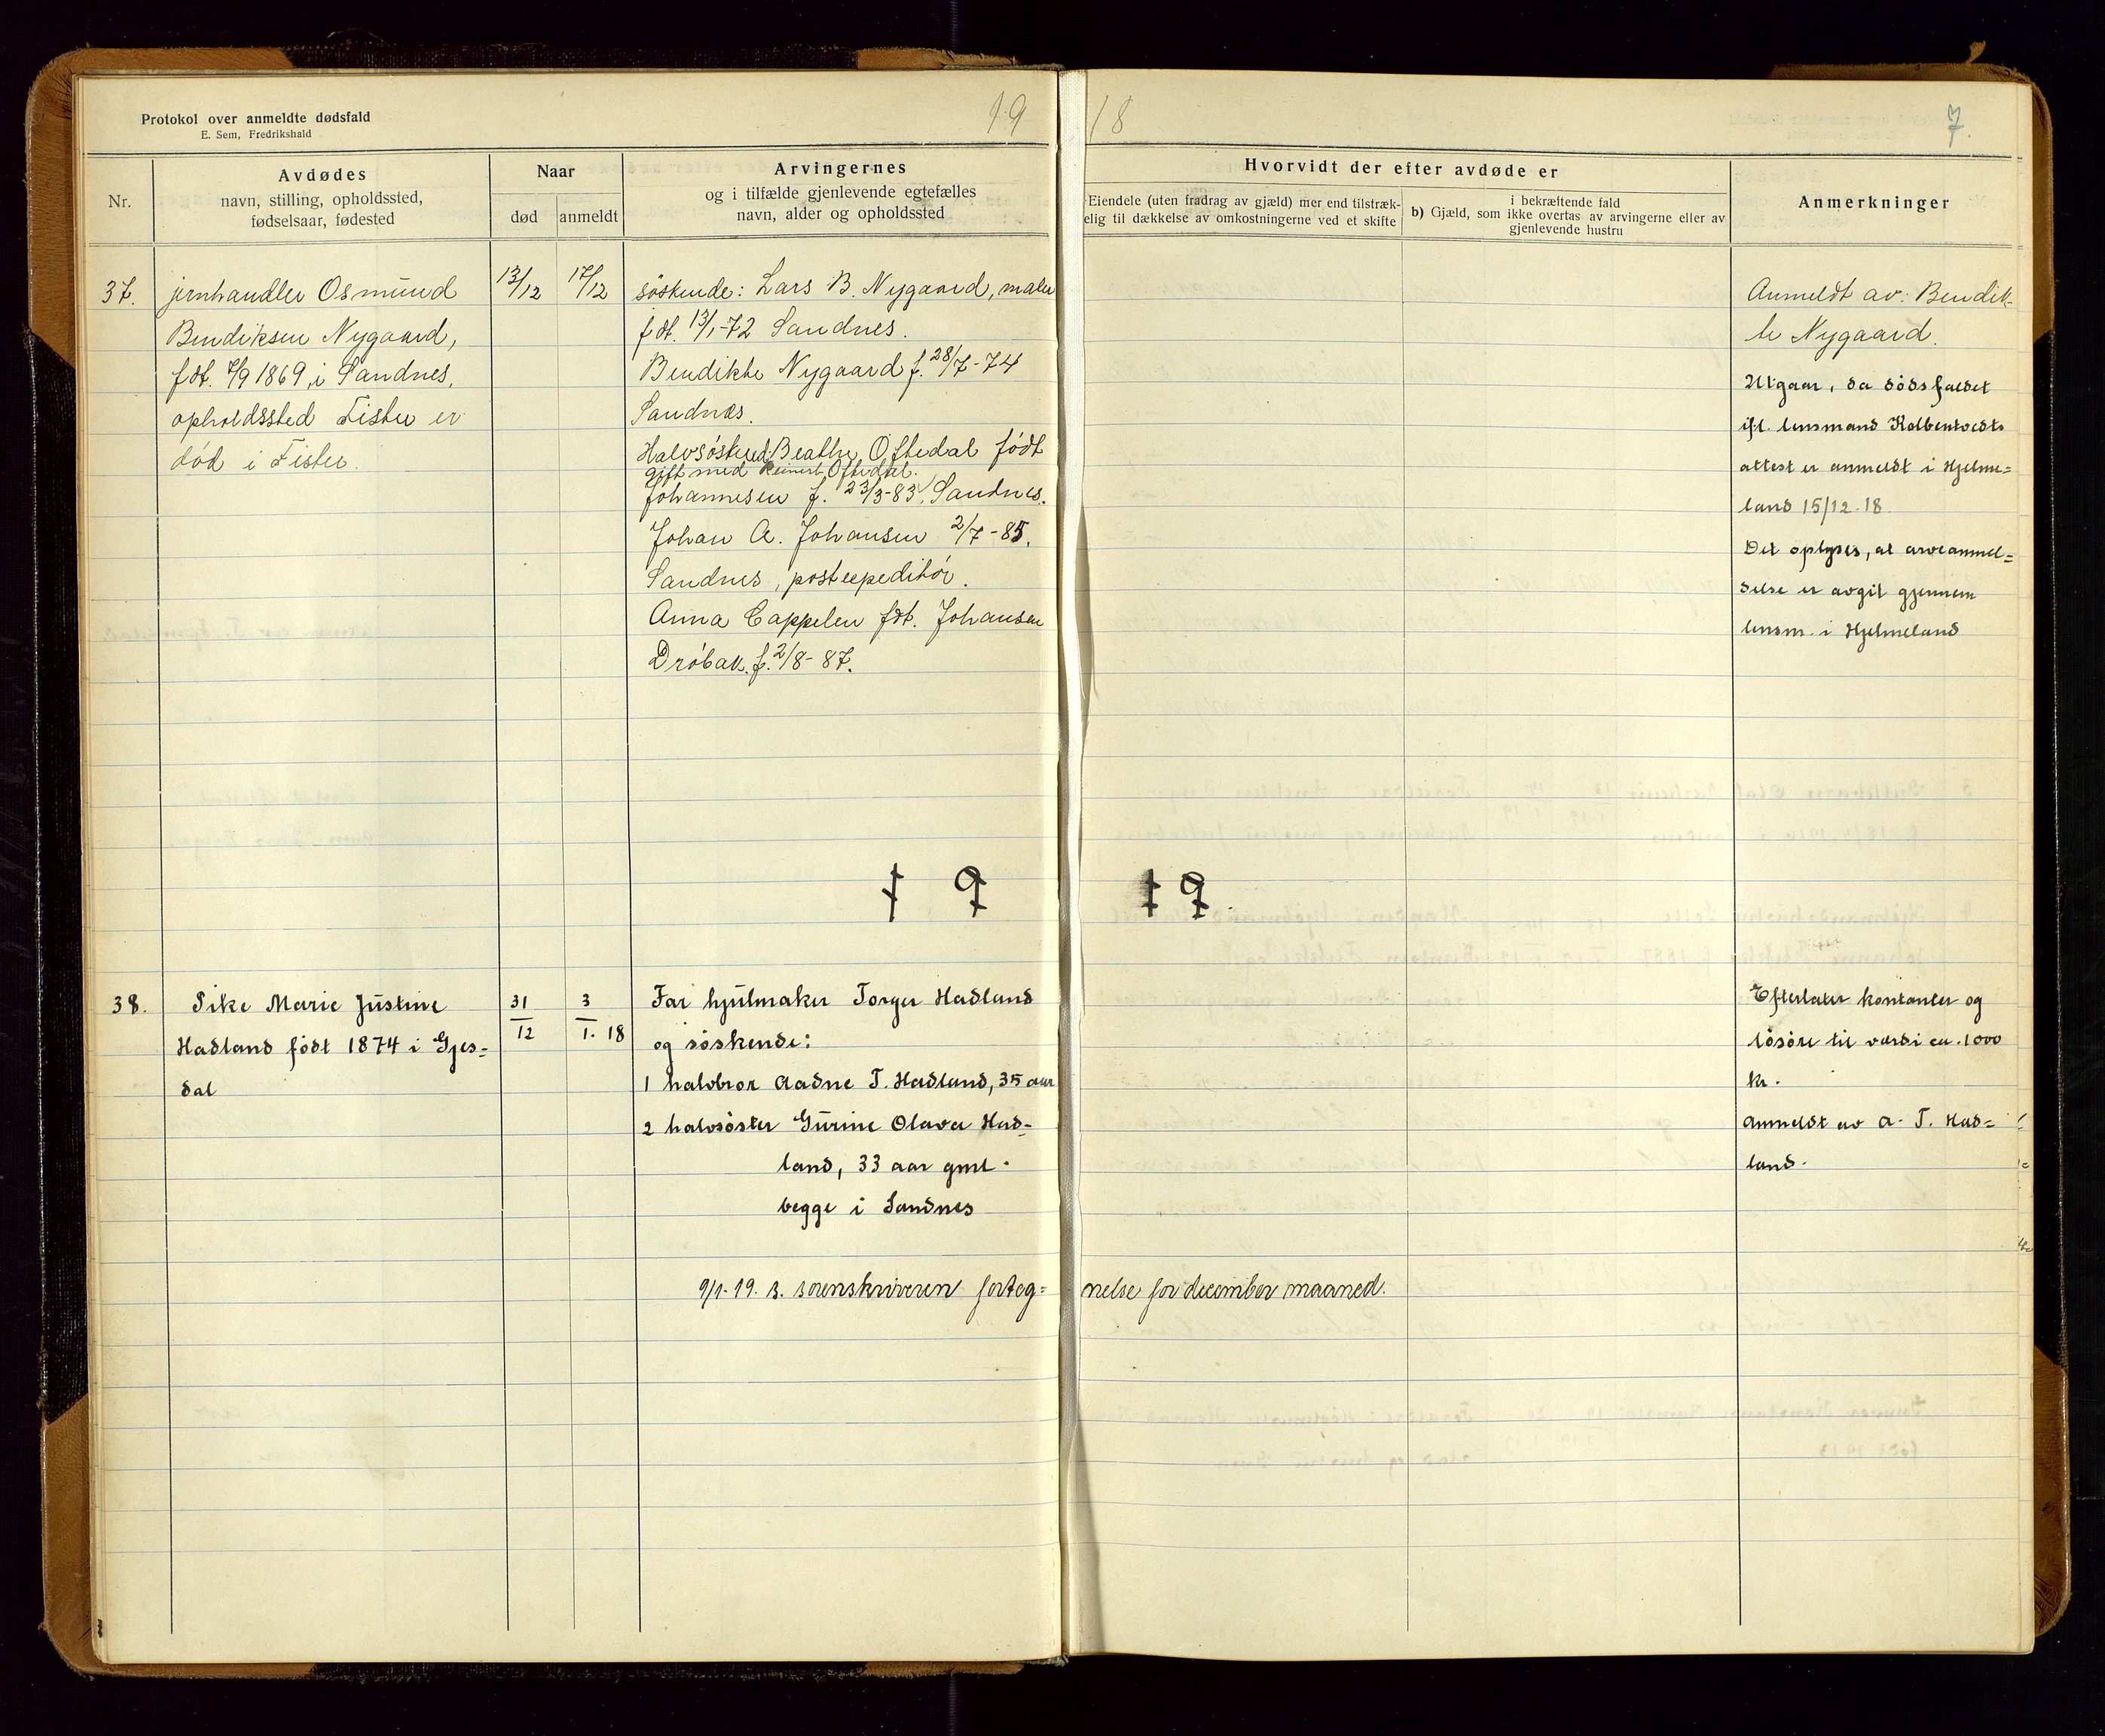 Protokol over anmeldte dødsfald
E. Sem, Fredrikshald
19
18
7.
Nr.
Avdødes
navn, stilling, opholdssted,
fødselsaar, fødested
Naar
død
anmeldt
Arvingernes
og i tilfælde gjenlevende egtefælles
navn, alder og opholdssted
Hvorvidt der efter avdøde er
Eiendele (uten fradrag av gjæld) mer end tilstræk-
elig til dækkelse av omkostningerne ved et skifte
i bekræftende fald
b) Gjæld, som ikke overtas av arvingerne eller av
gjenlevende hustru
Anmerkninger
37.
jernhandler Osmund
Bendiksen Nygaard,
fdt. /9 1869, i Sandnes,
opholdssted Fister er
død i Fister.
13/12
17/12
søskende: Lars B. Nygaard, maler
fdt. 13/1-72 Sandnes.
Bendikte Nygaard f. 28/7-74
Sandnes.
Halvsøsken Beathe Oftedal født
gift med Reinert Oftedal.
Johannesen f. 23/3-83, Sandnes.
Johan A. Johansen 2/7-85,
Sandnes, postexpeditør.
Anna Cappelen fdt. Johansen
Drøbak. f. 2/8-87.
Anmeldt av: Bendik-
te Nygaard.
Utgaar, da dødsfaldet
ifl. lensmand Kolbentvedts
attest er anmeldt i Hjelme=
land 15/12.18
Det oplyses, at arveanmel=
delse er avgit gjennem
lensm. i Hjelmeland
19
19.
38.
Pike Marie Justine
Hadland født 1874 i Gjes=
dal
31
12
3
1. 18
Far hjulmaker Torger Hadland
og søskende:
1 halvbror Aadne T. Hadland, 35 aar
2 halvsøster Gurine Olava Had=
land, 33 aar gml.
begge i Sandnes
Efterlater kontanter og
løsøre til værdi ca. 1000
kr.
Anmeldt av A. T. Had=
land.
9/1-19. s. sorenskriveren forteg=
nelse for december maaned.